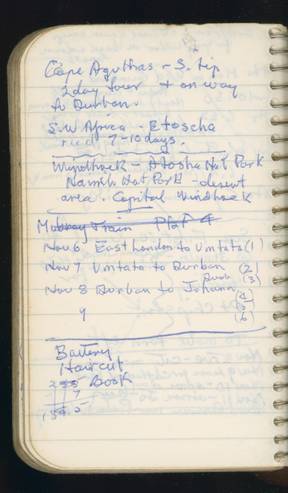 Cape Agulhas - S. tip
2 day tour + on way
to Durban.
S.W Africa - Etoscha
7-10 days.
Windhoek - Atosha Nat Park
Namib Nat Park - desert
area. Capital Windhoek
Train Plat 4
Nov 6 East London to Umtata (1)
Nov 7 Umtata to Durban (2)
(3)
Nov 8 Durban to Johann (4)
9 (5)
(6)
Battery
Haircut
Book
7